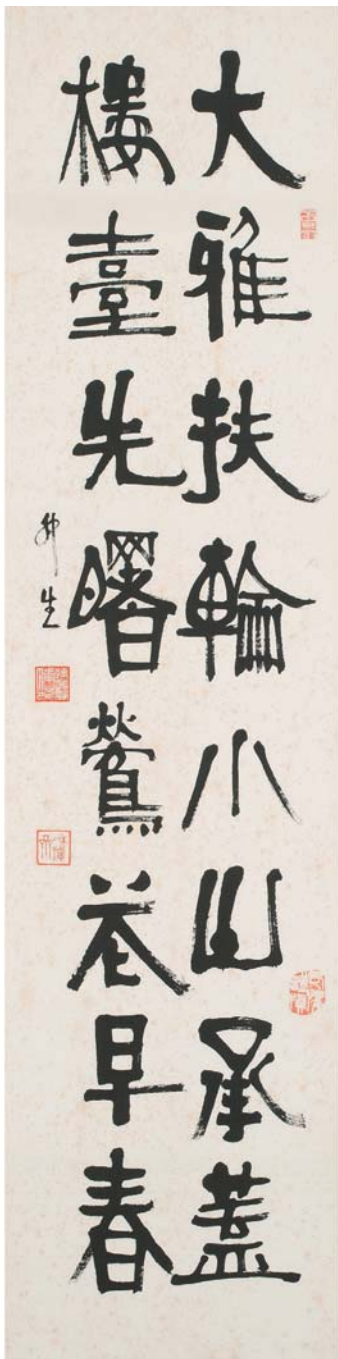 大雅扶輪小山承蓋
樓臺先曙鶯花早春